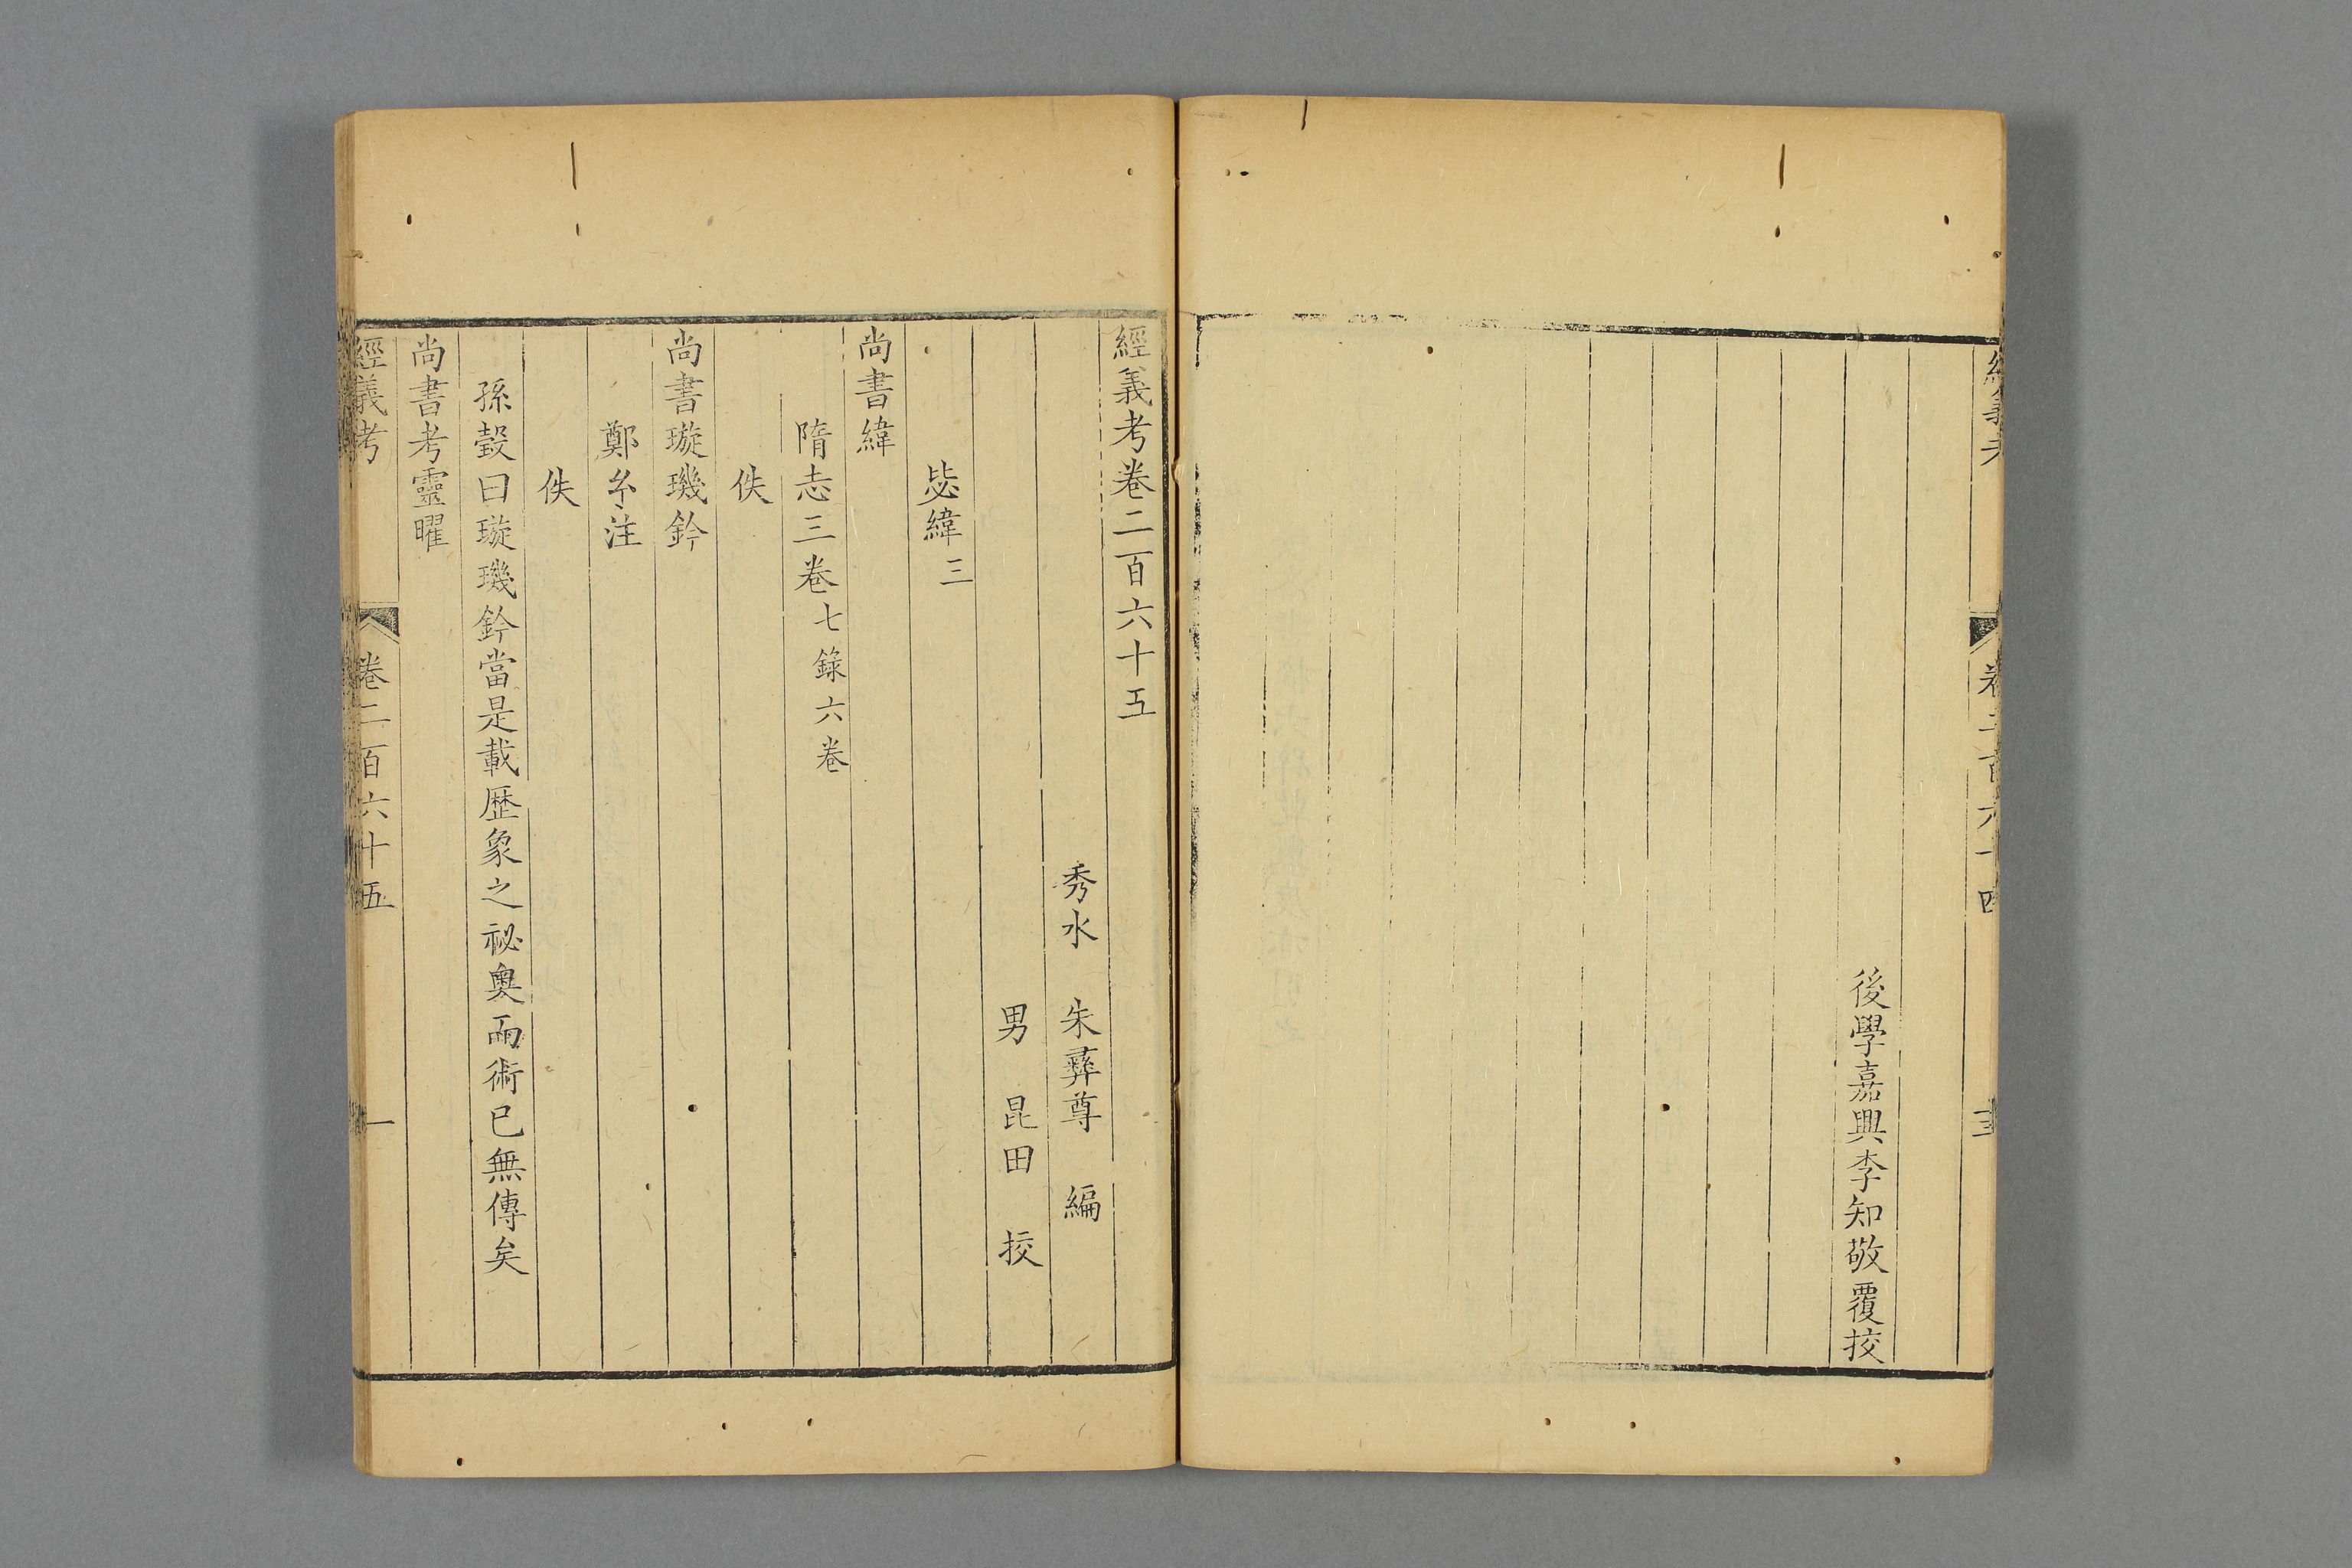 經義考
卷二百六十四
後學嘉興李知敬覆挍
經義考卷二百六十五
秀水 朱彝尊 編
男 昆田 挍
毖緯三
尚書緯
隋志三卷七錄六卷
佚
尚書璇璣鈐
鄭玄注
佚
孫瑴曰璇璣鈐當是載歷象之祕奧而術已無傳矣
尚書考靈曜
經義考
卷二百六十五
一